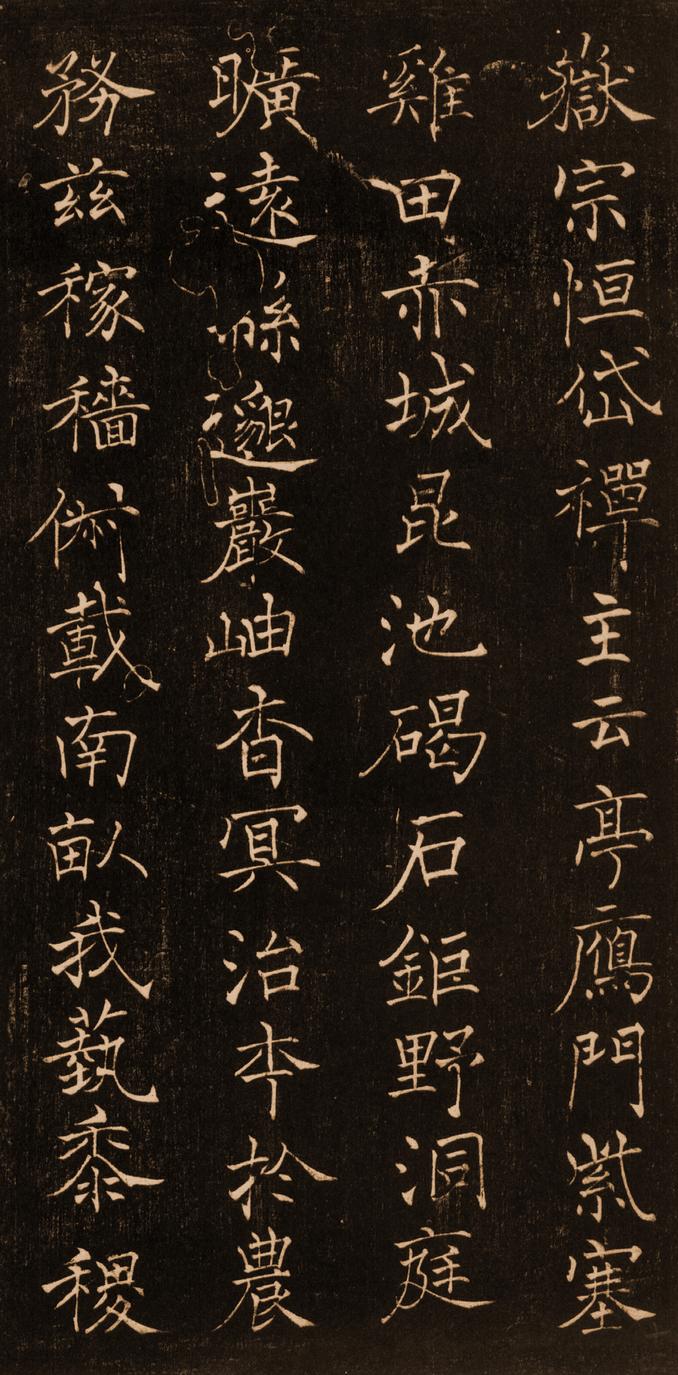 嶽宗恒岱禪主云亭鴈門紫塞
雞田赤城昆池碣石鉅野洞庭
曠遠緜邈巖岫杳冥治本於農
務兹稼穡俶載南畝我藝黍稷